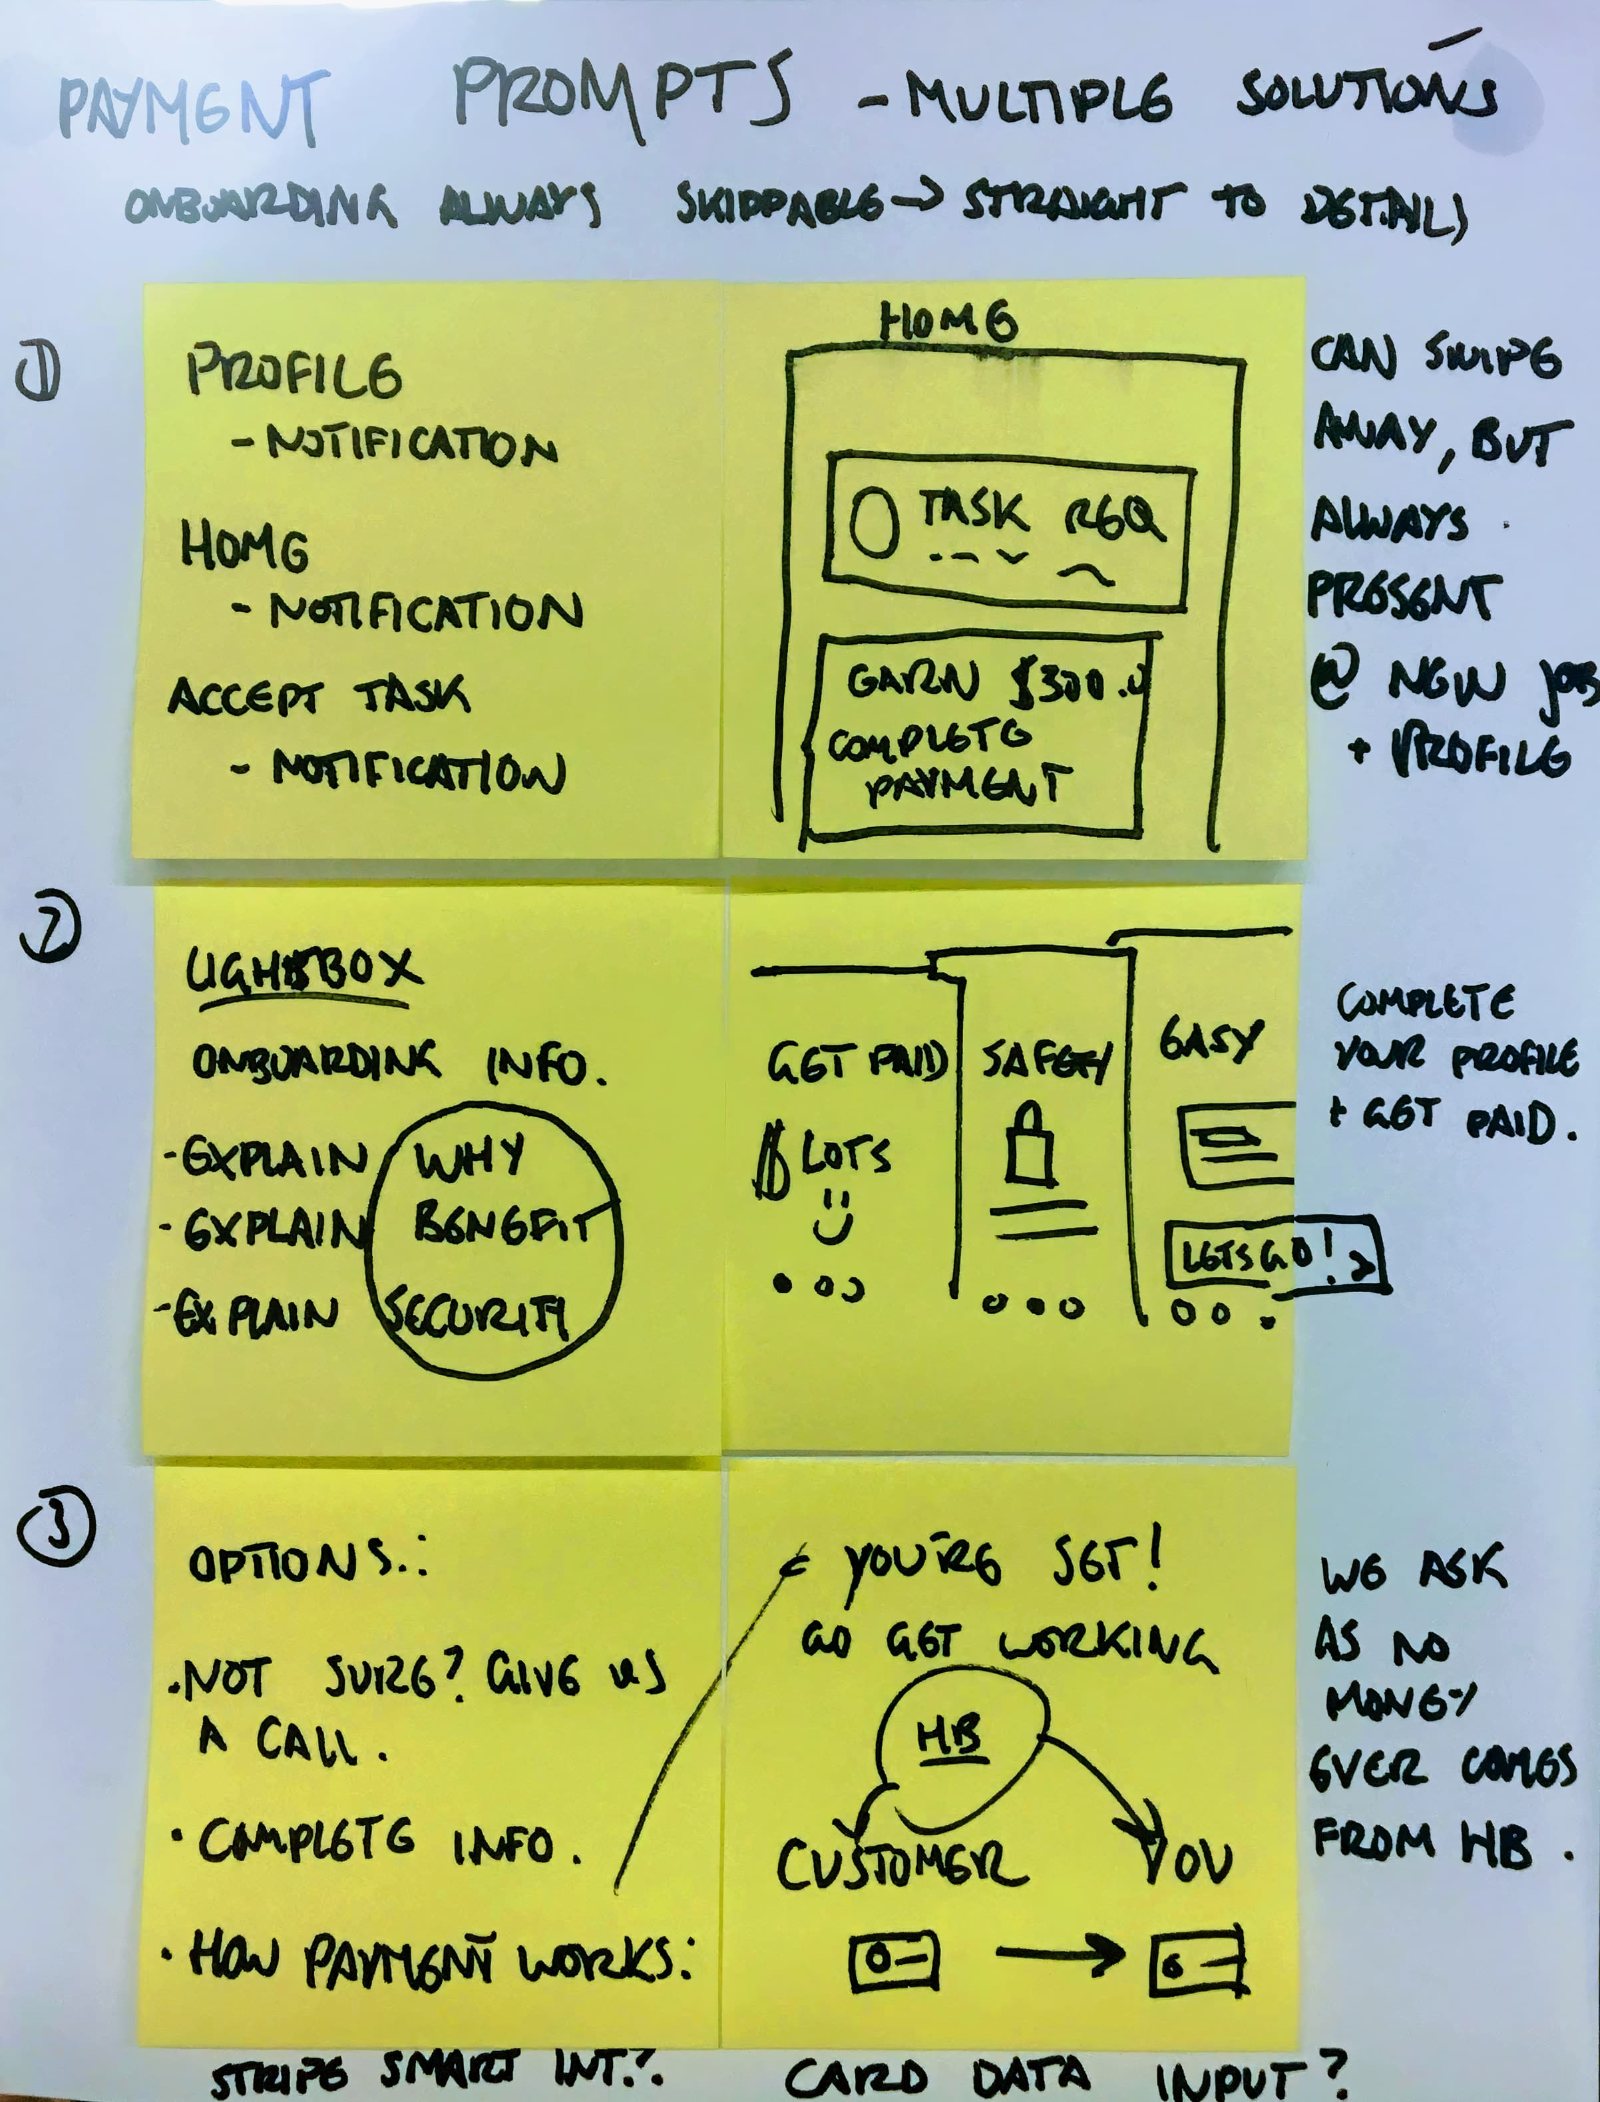 PAYMENT PROMPTS - MULTIPLE SOLUTIONS
ONBOARDING ALWAYS SKIPPABLE → STRAIGHT TO DETAILS
1
PROFILE
- NOTIFICATION
HOME
- NOTIFICATION
ACCEPT TASK
- NOTIFICATION
HOME
TASK REQ
EARN $300.0
COMPLETE
PAYMENT
CAN SWIPE
AWAY, BUT
ALWAYS
PRESENT
@ NEW JOB
+ PROFILE
2
LIGHTBOX
ONBOARDING INFO.
- EXPLAIN WHY
- EXPLAIN BENEFIT
- EXPLAIN SECURITY
GET PAID
$ LOTS
SAFETY
EASY
LETS GO! >
COMPLETE
YOUR PROFILE
+ GET PAID.
3
OPTIONS.:
. NOT SURE? GIVE US
A CALL.
• COMPLETE INFO.
• HOW PAYMENT WORKS:
YOU'RE SET!
GO GET WORKING
HB
CUSTOMER YOU
→
WE ASK
AS NO
MONEY
EVER COMES
FROM HB.
STRIPE SMART INT.?
CARD DATA INPUT?